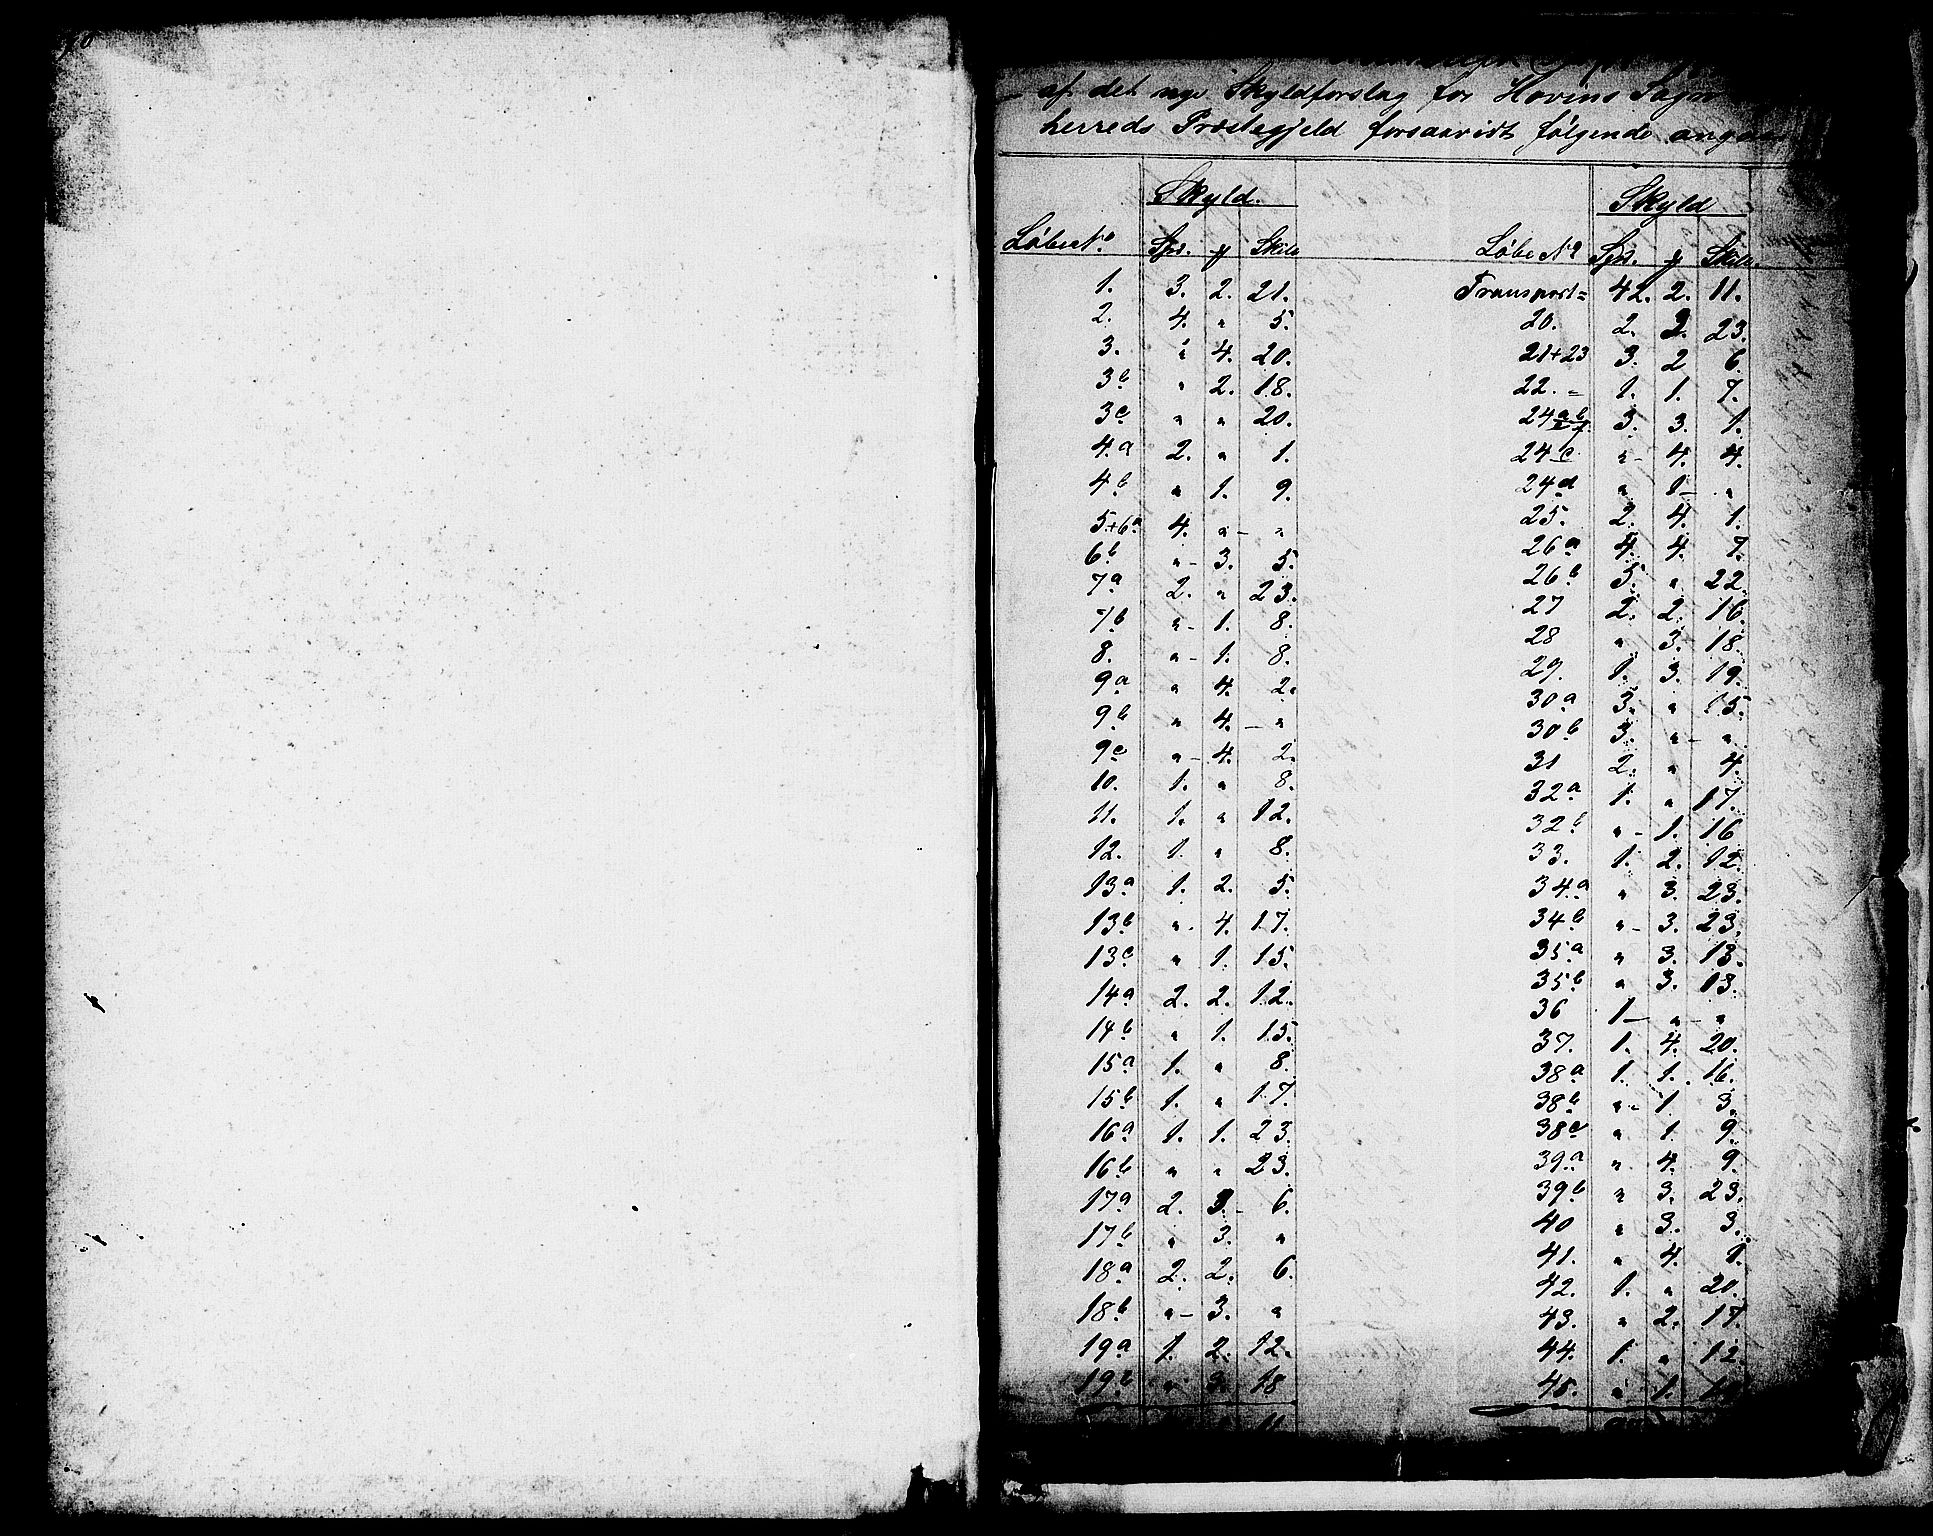 af det nye Skyldforslag for Hovins Sogn
herreds Præstegjeld forsaavidt følgende angaar
Skyld.
Løbe No Spd. ƒ Skill
1. 3. 2. 21.
2. 4. " 5.
3. " 4. 20.
3b " 2. 18.
3c " " 20.
4.a 2. " 1.
4b " 1. 9.
5+6a 4. " – "
6b " – 3. 5.
7a 2. " 23.
7b " – 1. 8.
8. " – 1. 8.
9a " 4. 2.
9b " 4. – "
9c " – 4. 2.
10. 1. " 8.
11. 1. " 12.
12. 1. " 8.
13a 1. 2. 5.
13b " . 4. 17.
13c " 1. 15.
14a 2. 2. 12.
14b " 1. 15.
15a 1. " 8.
15b 1. " 17.
16a 1. 1. 23.
16b " " 23.
17a 2. 3 – 6.
17b " 3. "
18a 2. 2. 6.
18b " – 3. "
19a 1. 2. 12.
19b " 3. 18
11.
Skyld
Løbe No Spd. ƒ Skill.
Transport = 42. 2. 11.
20. 2. 2. 23.
21+23 3. 2 6.
22. = 1. 1. 7.
24 a b f. 3. 3. 1.
24c " – 4. 4.
24d " 1 – "
25. 2. 4. 1.
26a 4. 4. 7.
26b 5. " 22.
27 2. 2. 16.
28 " 3. 18.
29. 1. 3. 19.
30a 3. " 15.
30b 3. " – "
31 2. " 4.
32a 1. " 17.
32b " – 1. 16
33. 1. 2. 12.
34a " 3. 23.
34b " – 3. 23.
35a " 3. 13.
35b " 3. 13.
36 1 – " – "
37. 1. 4. 20.
38a 1. 1. 16.
38b " – 1. 3.
38c " 1. 9.
39a " 4. 9.
39b " 3. 23.
40 " 3. 3.
41. " 4. 1.
42. 1. " 20.
43. " 2. 17.
44. 1. " 12.
45. " 1.